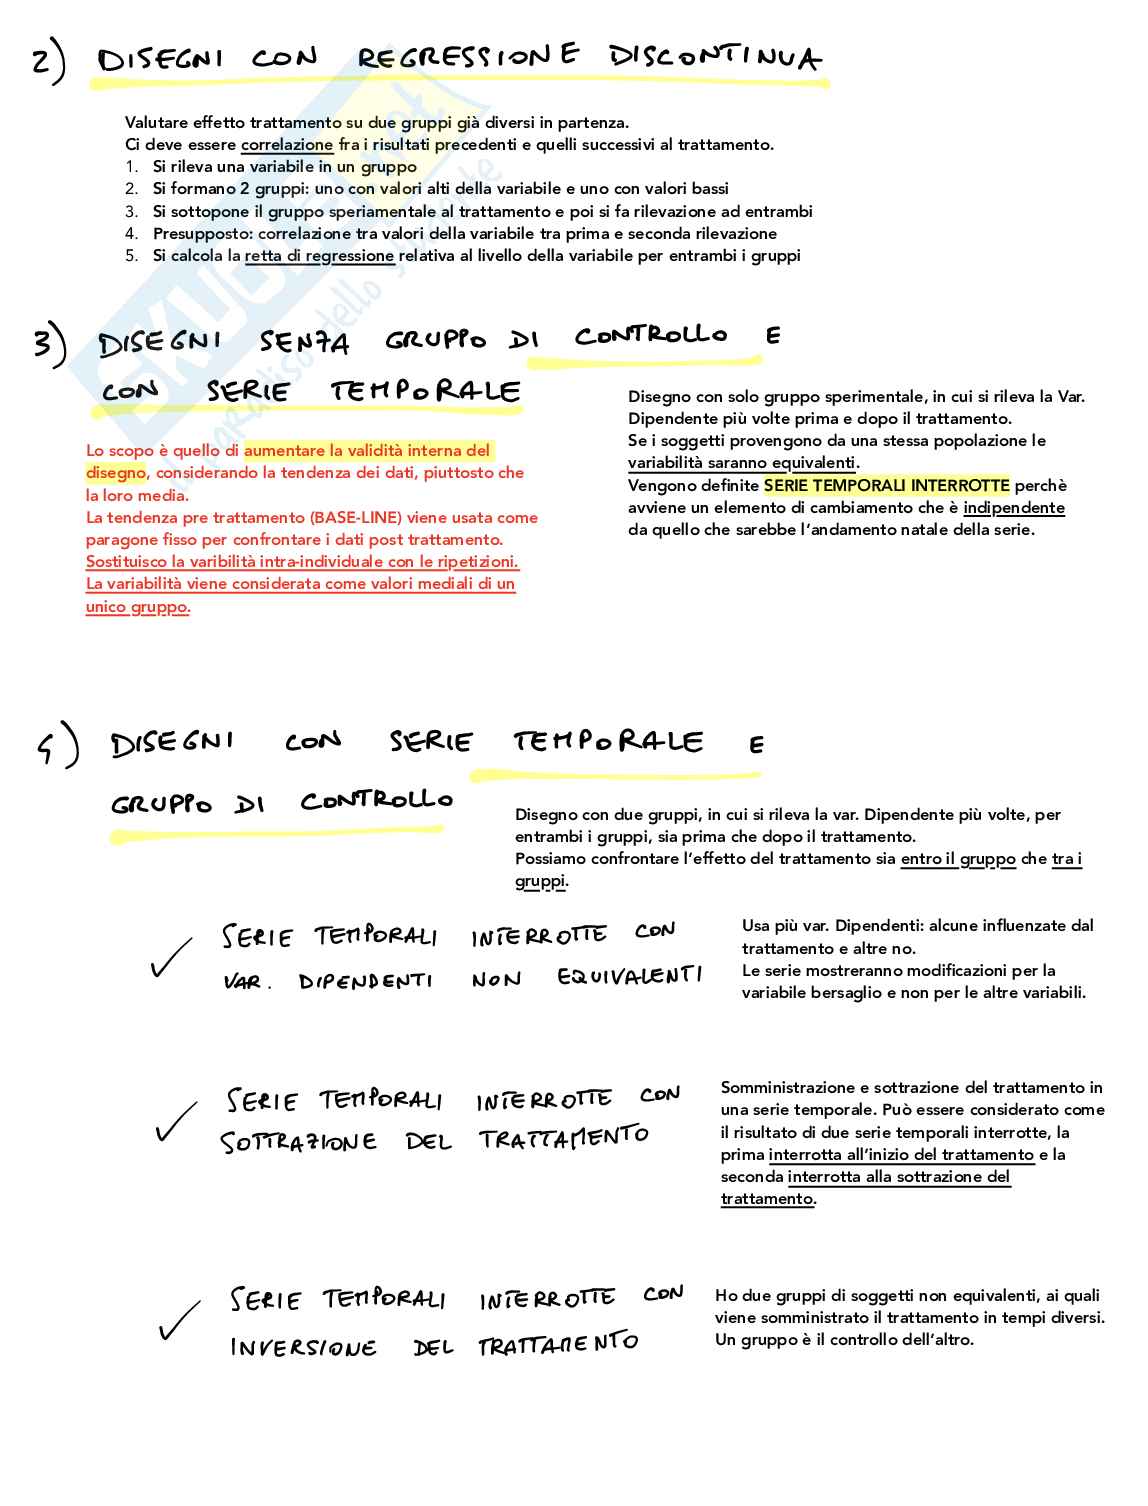 2) DISEGNI CON REGRESSIONE DISCONTINUA
Valutare effetto trattamento su due gruppi già diversi in partenza.
Ci deve essere correlazione fra i risultati precedenti e quelli successivi al trattamento.
1. Si rileva una variabile in un gruppo
2. Si formano 2 gruppi: uno con valori alti della variabile e uno con valori bassi
3. Si sottopone il gruppo speriamentale al trattamento e poi si fa rilevazione ad entrambi
4. Presupposto: correlazione tra valori della variabile tra prima e seconda rilevazione
5. Si calcola la retta di regressione relativa al livello della variabile per entrambi i gruppi
SKUOLA.net
il paradiso dello studente
3) DISEGNI SENZA GRUPPO DI CONTROLLO E
CON SERIE TEMPORALE
Lo scopo è quello di aumentare la validità interna del
disegno, considerando la tendenza dei dati, piuttosto che
la loro media.
La tendenza pre trattamento (BASE-LINE) viene usata come
paragone fisso per confrontare i dati post trattamento.
Sostituisco la varibilità intra-individuale con le ripetizioni.
La variabilità viene considerata come valori mediali di un
unico gruppo.
Disegno con solo gruppo sperimentale, in cui si rileva la Var.
Dipendente più volte prima e dopo il trattamento.
Se i soggetti provengono da una stessa popolazione le
variabilità saranno equivalenti.
Vengono definite SERIE TEMPORALI INTERROTTE perchè
avviene un elemento di cambiamento che è indipendente
da quello che sarebbe l'andamento natale della serie.
4) DISEGNI CON SERIE TEMPORALE E
GRUPPO DI CONTROLLO
Disegno con due gruppi, in cui si rileva la var. Dipendente più volte, per
entrambi i gruppi, sia prima che dopo il trattamento.
Possiamo confrontare l'effetto del trattamento sia entro il gruppo che tra i
gruppi.
✓ SERIE TEMPORALI INTERROTTE CON
VAR. DIPENDENTI NON EQUIVALENTI
Usa più var. Dipendenti: alcune influenzate dal
trattamento e altre no.
Le serie mostreranno modificazioni per la
variabile bersaglio e non per le altre variabili.
✓ SERIE TEMPORALI INTERROTTE CON
SOTTRAZIONE DEL TRATTAMENTO
Somministrazione e sottrazione del trattamento in
una serie temporale. Può essere considerato come
il risultato di due serie temporali interrotte, la
prima interrotta all'inizio del trattamento e la
seconda interrotta alla sottrazione del
trattamento.
✓ SERIE TEMPORALI INTERROTTE CON
INVERSIONE DEL TRATTAMENTO
Ho due gruppi di soggetti non equivalenti, ai quali
viene somministrato il trattamento in tempi diversi.
Un gruppo è il controllo dell'altro.